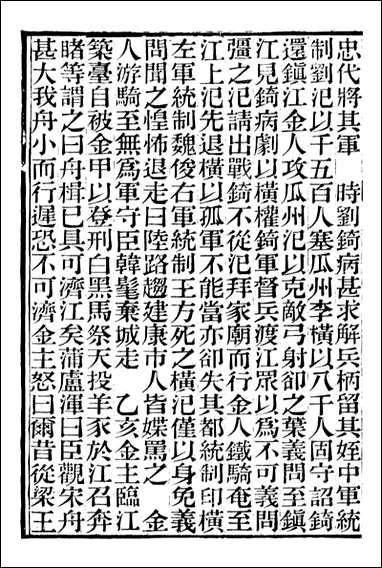 忠代將其軍　時劉錡病甚求解兵柄留其姪中軍統
制劉汜以千五百人塞瓜州李橫以八千人固守詔錡
還鎮江金人攻瓜州汜以克敵弓射卻之葉義問至鎮
江見錡病劇以橫權錡軍督兵渡江眾以為不可義問
彊之汜請出戰錡不從汜拜家廟而行金人鐵騎奄至
江上汜先退橫以孤軍不能當亦卻失其都統制印橫
左軍統制魏俊右軍統制王方死之橫汜僅以身免義
問聞之惶怖退走曰陸路趨建康市人皆媟罵之　金
人游騎至無為軍守臣韓髦棄城走　乙亥金主臨江
築臺自被金甲以登刑白黑馬祭天投羊豕於江召奔
睹等謂之曰舟楫已具可濟江矣蒲盧渾曰臣觀宋舟
甚大我舟小而行遲恐不可濟金主怒曰爾昔從梁王